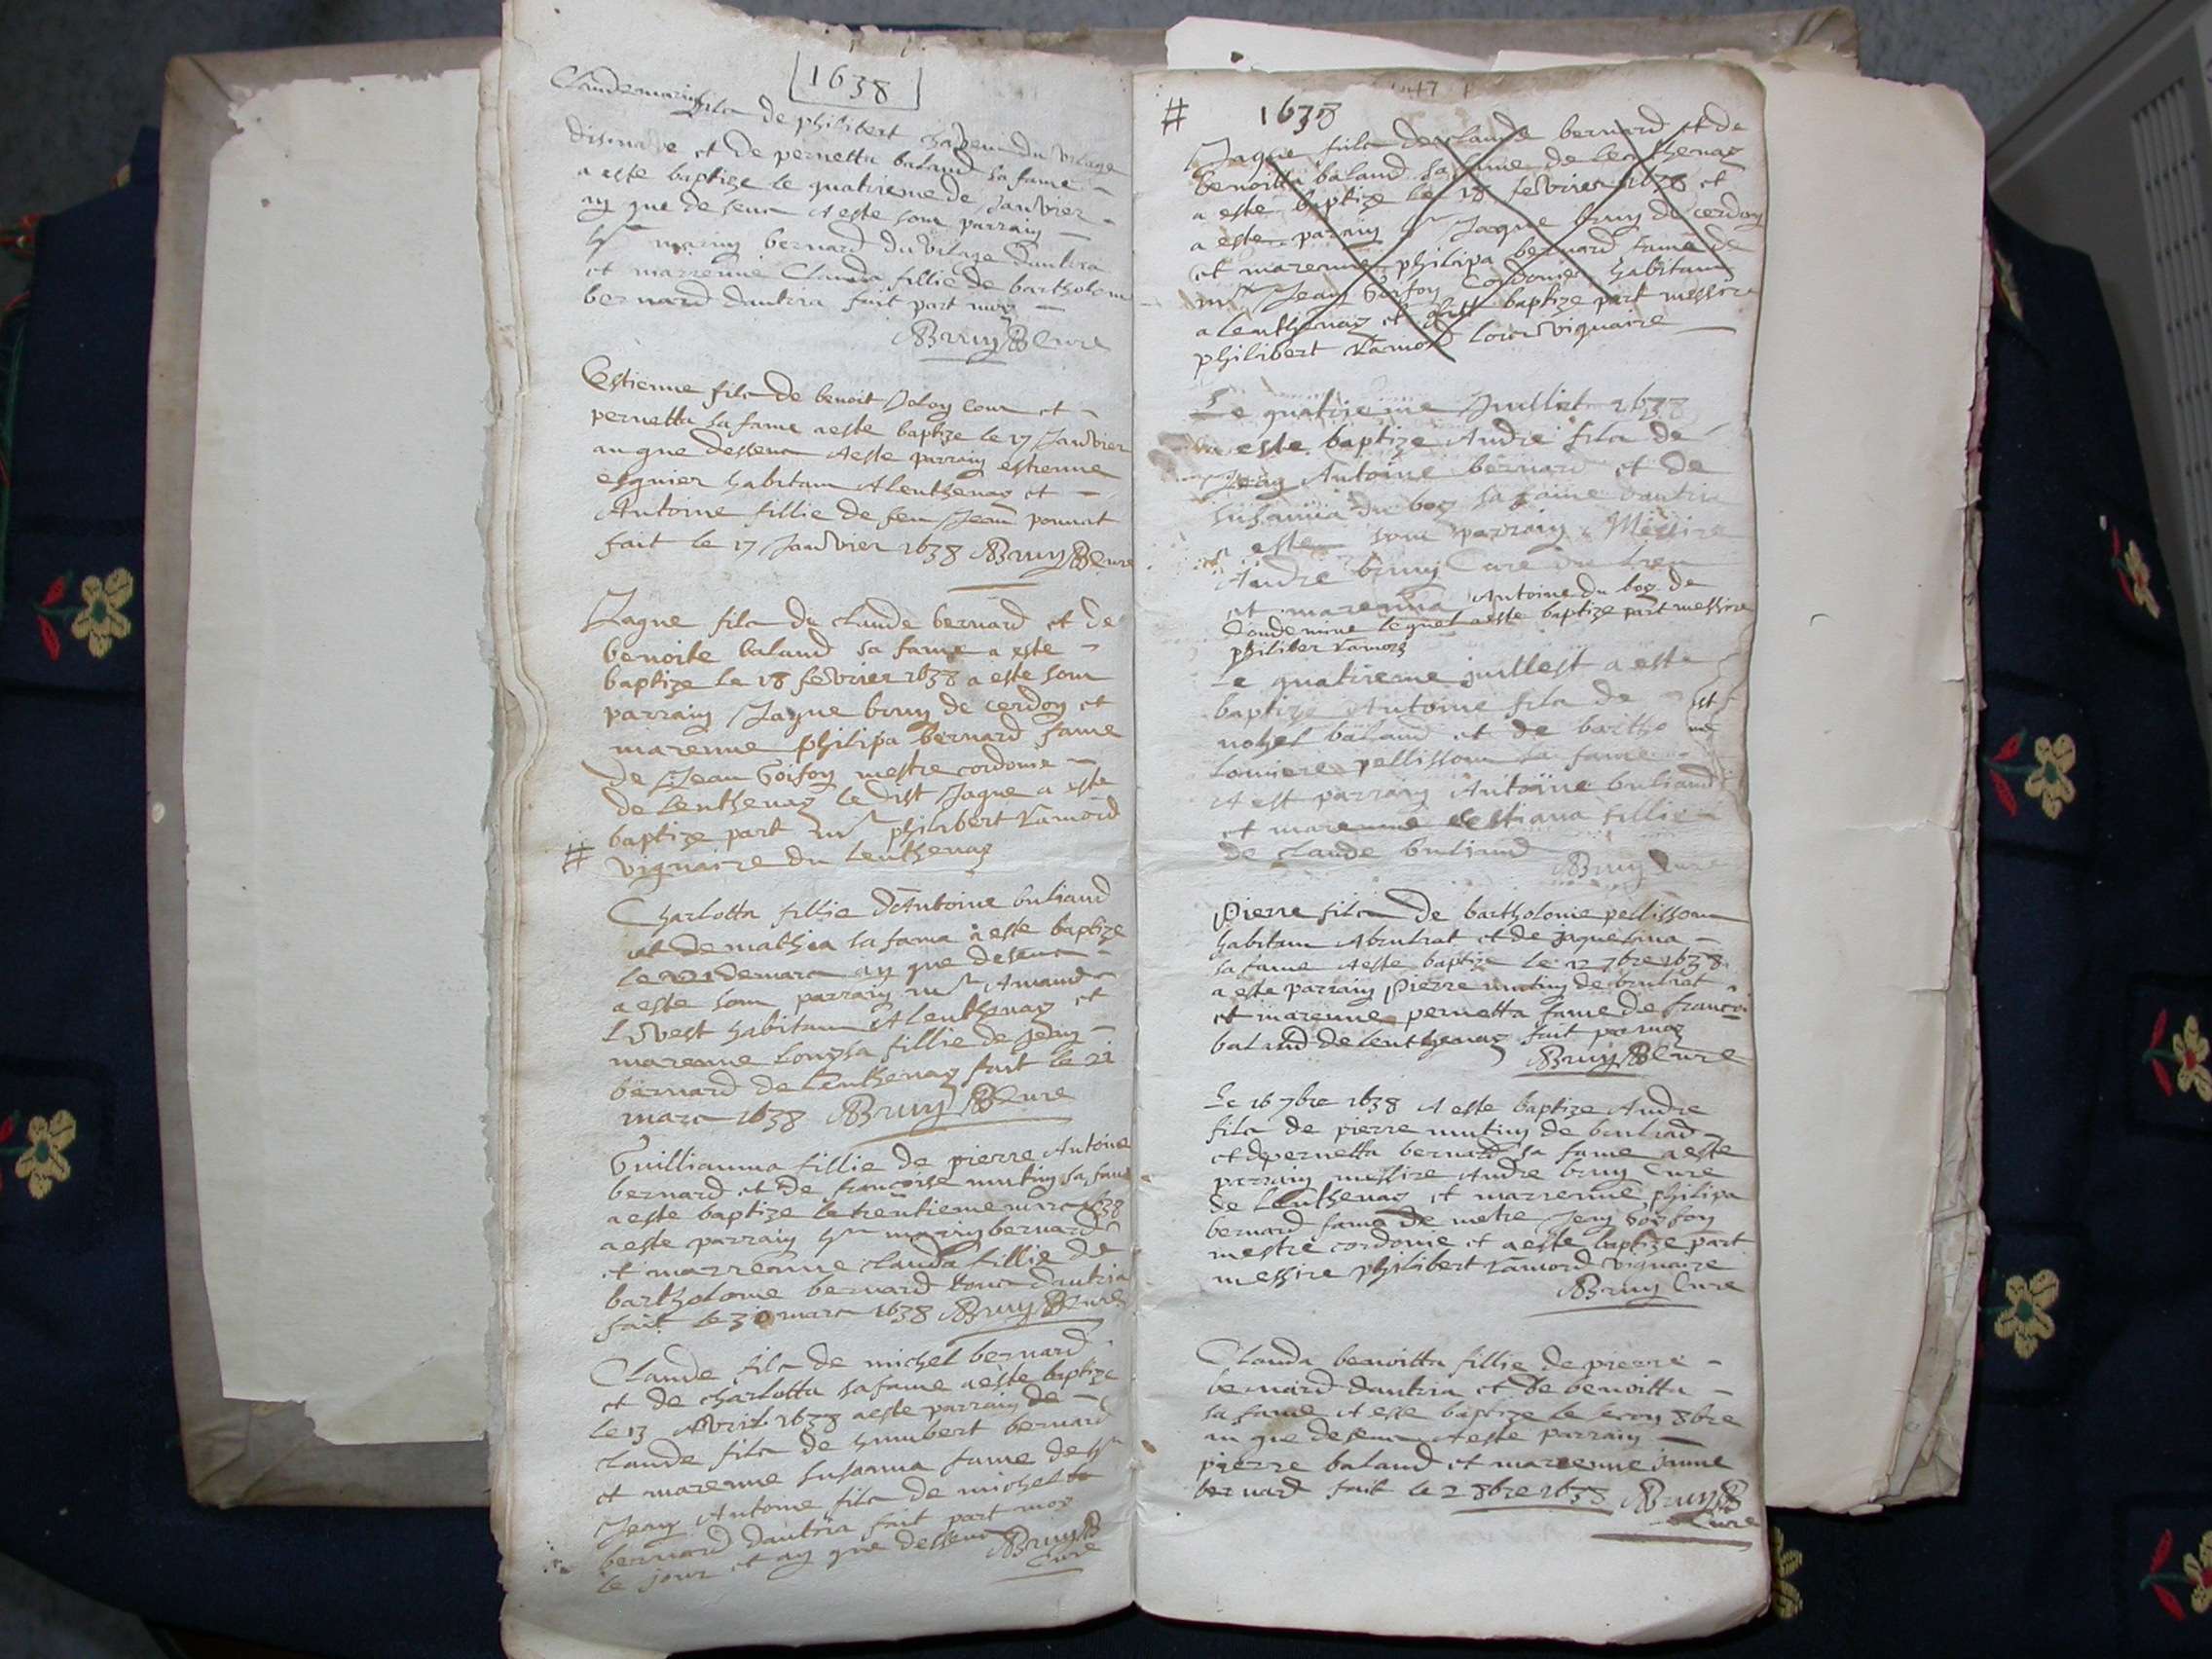 1638
Claude marin fils de philibert du vilage
et de pernetta baland sa fame
a este baptize le quatrieme de Janvier
ay que deseur A este som parraiy
mariny bernard du vilage dautria
et marrenne Clauda fillie de bartholome
bernard dautria fait part moy
ABruy B Cure
Estienne fils de benoit et
pernetta sa fame aeste baptize le 17 Janvier
an que desseur Aeste parraiy estienne
habitam Alenthenay et
Antoine fillie de feu Jean ponnat
fait le 17 Janvier 1638 ABruy B Cure
Jaque fils du claude bernard et de
benoite baland sa fame a este
baptize le 18 fevrier 1638 a este som
parraiy Jaque bruy de cerdoy et
marenne philipa bernard fame
de Jean Goifoy mestre cordonie
de lenthenay le dist Jaque a este
baptize part mre philibert Ramord
# viguaire du lenthenay
Charlotta fillie dAntoine buliand
et de mathia sa fama a este baptize
le 21 de mars ay que deseur
a este som parraiy mre Amand
habitam Alenthenay et
marenne Louysa fillie de Jeay
bernard de Lenthenay fait le 21
mars 1638 ABruy B Cure
Guillianma fillie de pierre Antoine
bernard et de françoise mutiny sa fame
a este baptize le trentieme mars 1638
aeste parraiy mariny bernard
et marrenne clauda fillie de
bartholome bernard dautria
fait le 30 mars 1638 ABruy B Cure
Claude fils de michel bernard
et de charlotta sa fame aeste baptize
le 13 Avril 1638 aeste parraiy de
claude fils de humbert bernard
et marenne susanna fame de
Jeay Antoine fils de michel
bernard dautria fait part moy
le jour et ay que desseur ABruy B
Cure
# 1638
Jaque fils de claude bernard et de
benoitta baland sa fame de lenthenay
a este baptize le 18 fevrier 1638 et
a este paraiy Jaque bruy de cerdoy
et marenne philipa bernard fame de
mre Jeay Goifoy Cordonier habitam
a lenthenay et baptize part messire
philibert Ramord viguaire
Le quatrieme Juilliet 1638
a este baptize Andre fils de
Jeay Antoine bernard et de
susanna du boy sa fame dautria
a este som parraiy Messire
Andre bruy Cure du lieu
et marenna Antoine du boy de
Condemine lequel aeste baptize part messire
philiber Ramord
Le quatrieme juillest a este
baptize Antoine fils de
nohel baland et de bartho
lomiere pellissom sa fame
A est parraiy Antoine buliand
et marenne estiana fillie
de claude buliand
ABruy Cure
Pierre fils de bartholomie pellissom
habitam Abrulrat et de jaquelina
sa fame Aeste baptize le 12 7bre 1638
a este parraiy pierre mutiny de brulrat
et marenne pernetta fame de françoi
baland de lenthenay fait par moy
ABruy B Cure
Le 16 7bre 1638 A este baptize Andre
fils de pierre mutiny de
et de pernetta bernard sa fame aeste
parraiy messire Andre bruy Cure
de Lenthenay et marrenne philipa
bernard fame de metre Jeay Goyfoy
mestre cordonie et aeste baptize part
messire philibert Ramord viguaire
ABruy Cure
Clauda benoitta fillie de pierre
bernard dautria et de benoitta
sa fame A este baptize le secoy 8bre
an que deseur Aeste parraiy
pierre baland et marenne
bernard fait le 2 8bre 1638 ABruy B
Cure